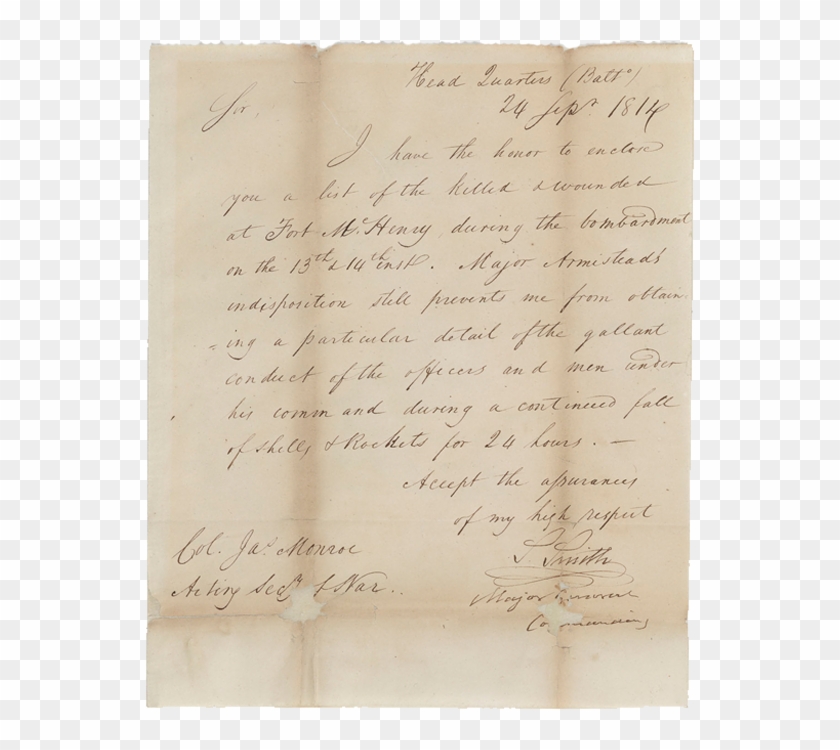 Head Quarters (Balto)
24 Sepr. 1814
Sir,
I have the honor to enclose
you a list of the killed & wounded
at Fort McHenry, during the bombardment
on the 13th & 14th inst. Major Armistead's
indisposition still prevents me from obtain-
-ing a particular detail of the gallant
conduct of the officers and men under
his command during a continued fall
of shells & Rockets for 24 hours. —
Accept the assurances
of my high respect
S. Smith
Major General
Commanding
Col. Jas. Monroe
Acting Secy of War.